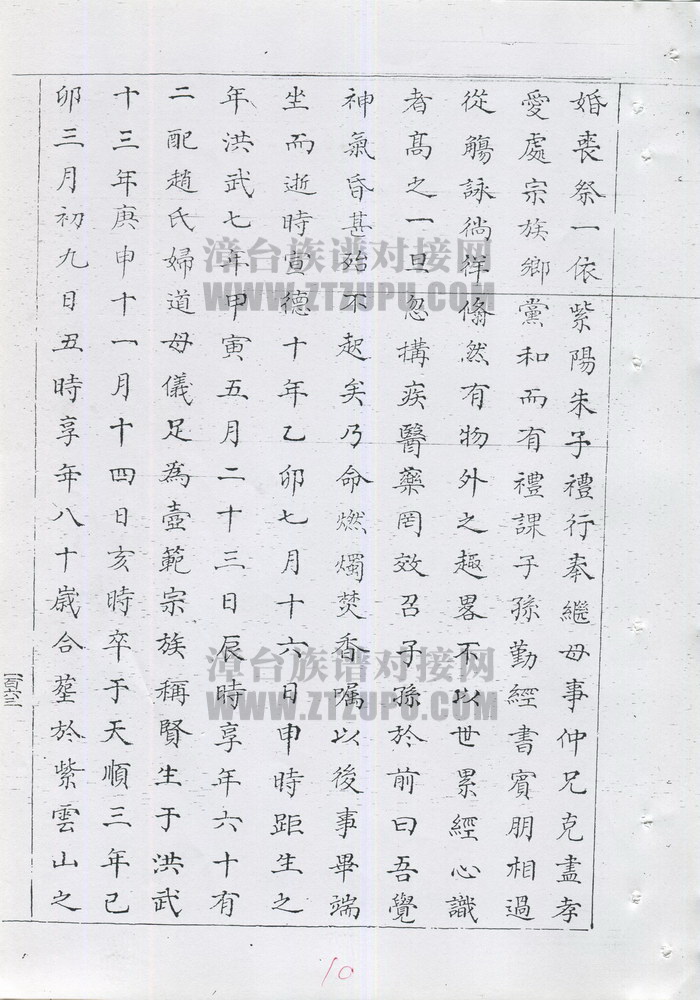 婚喪祭一依紫陽朱子禮行奉繼母事仲兄克盡孝
愛處宗族鄉黨和而有禮課子孫勤經書賓朋相過
從觴詠徜徉翛然有物外之趣畧不以世累經心識
者髙之一旦忽搆疾醫藥罔效召子孫於前曰吾覺
神氣昏甚殆不起矣乃命燃燭焚香嘱以後事畢端
坐而逝時宣德十年乙卯七月十六日申時距生之
年洪武七年甲寅五月二十三日辰時享年六十有
二配趙氏婦道母儀足為壼範宗族稱賢生于洪武
十三年庚申十一月十四日亥時卒于天順三年已
卯三月初九日丑時享年八十歲合塟於紫雲山之
漳台族谱对接网
WWW.ZTZUPU.COM
漳台族谱对接网
WWW.ZTZUPU.COM
10